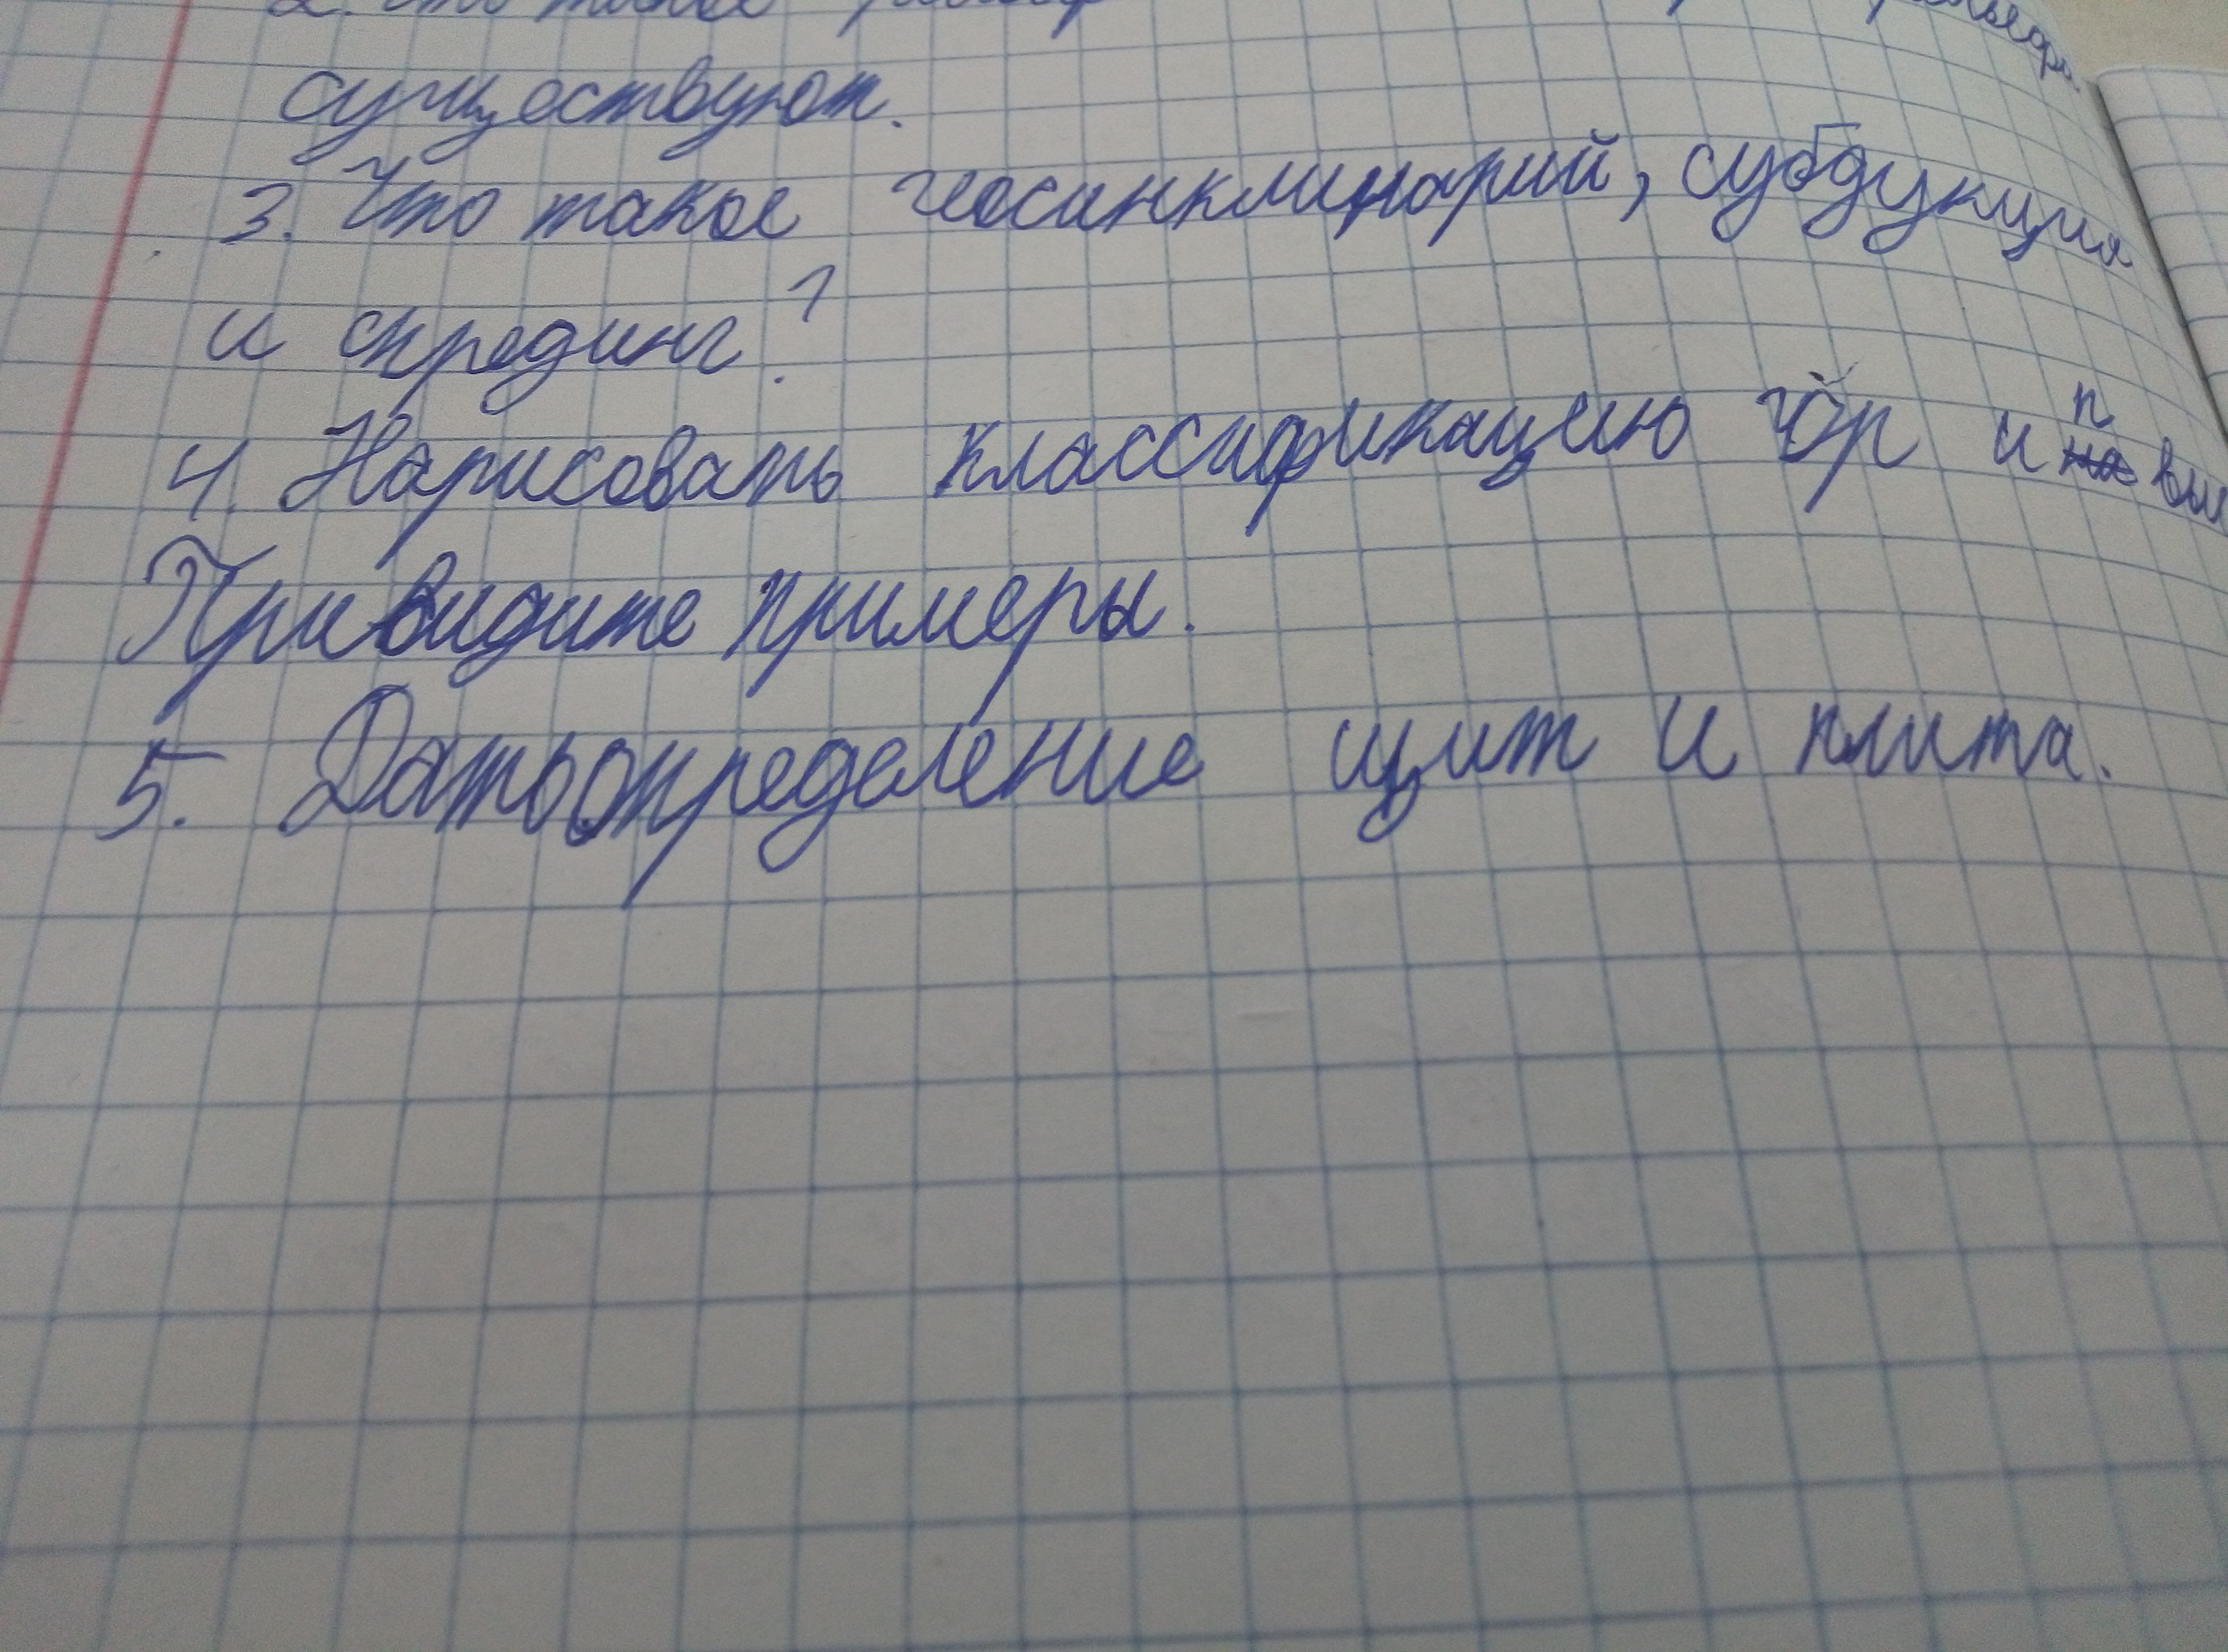 2. Что такое
существуют.
3. Что такое геосинклинарий, субдукция
и спрединг?
4. Нарисовать классификацию гор и п вы
Привидите примеры.
5. Дать определение щит и плита.